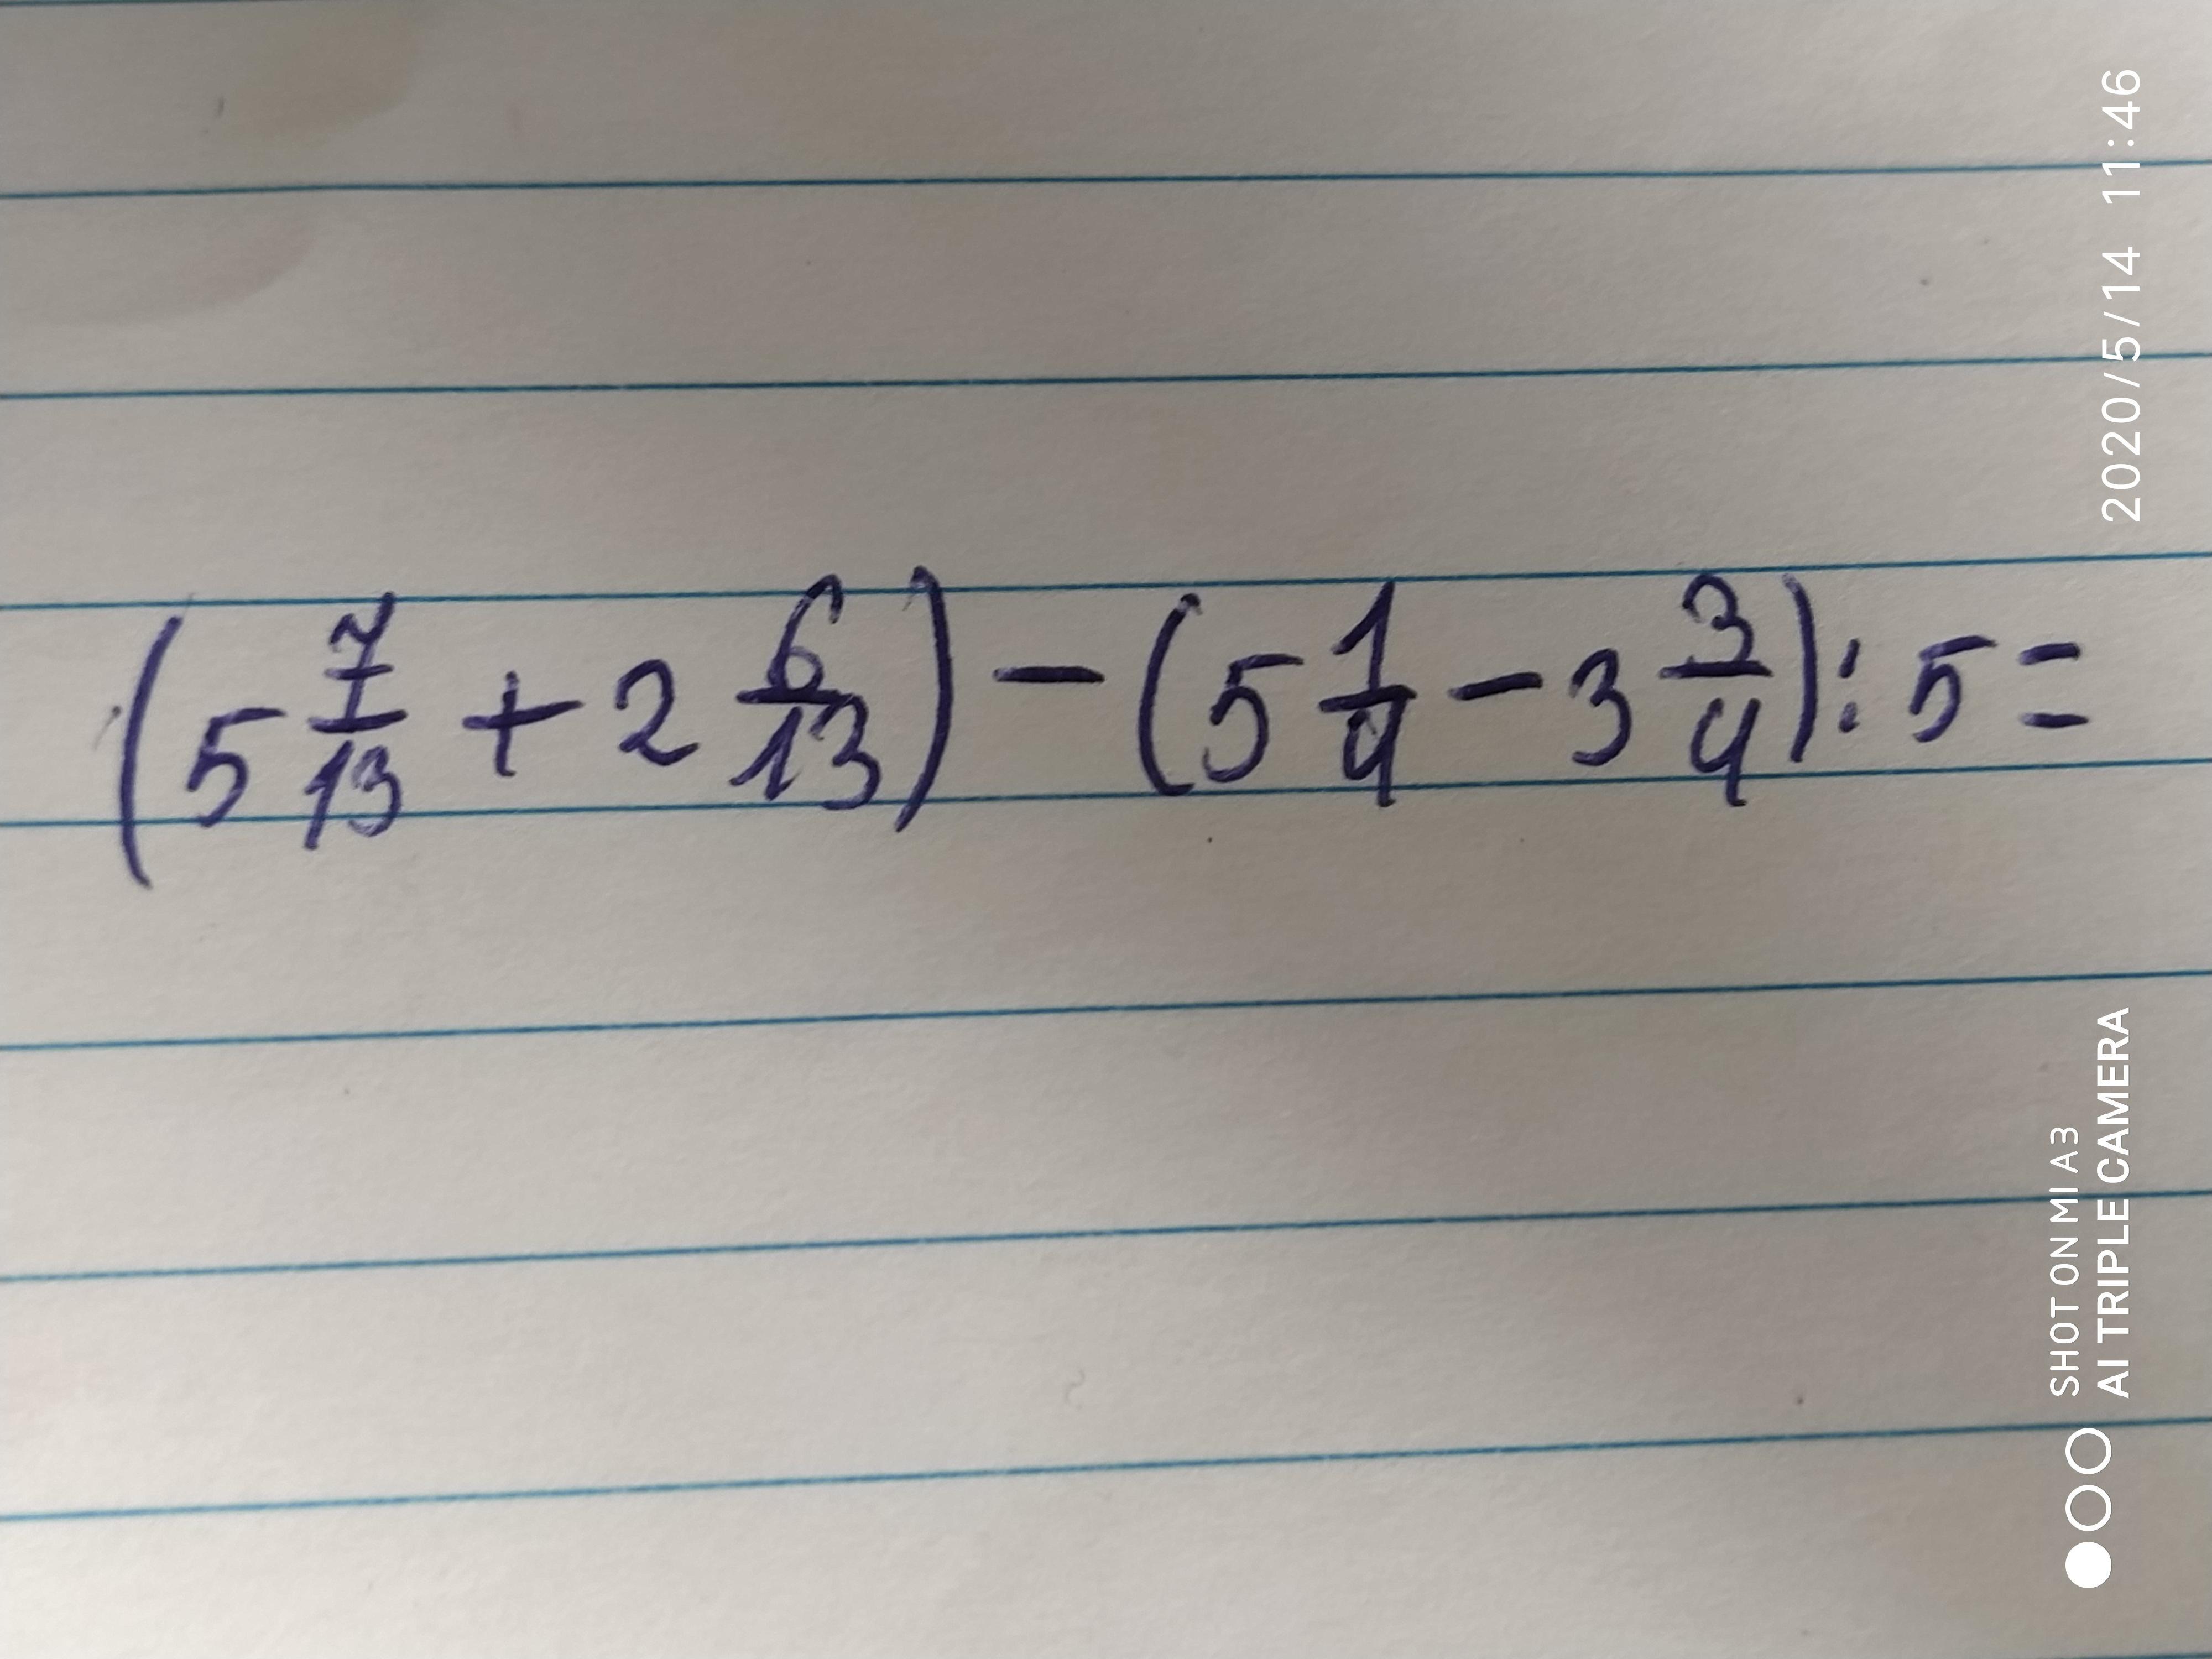 (5 7/13 + 2 6/13) - (5 1/4 - 3 3/4) : 5 =
2020/5/14 11:46
SHOT ON MI A3
AI TRIPLE CAMERA